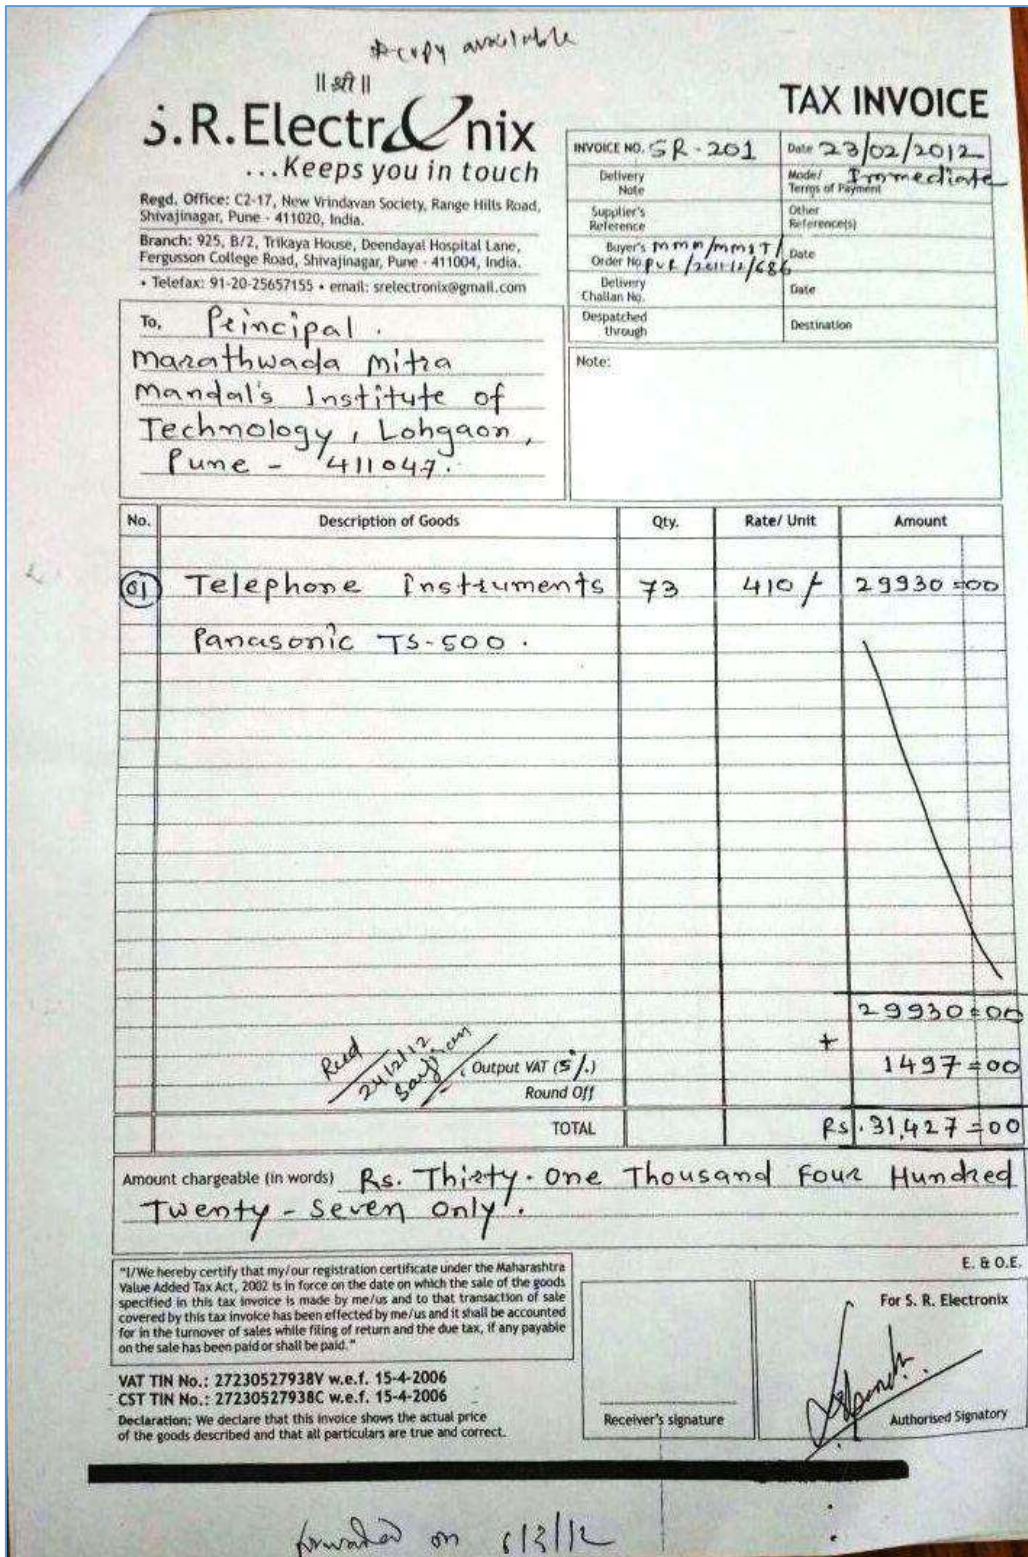 *copy available
|| श्री ||
S.R.Electronix
...Keeps you in touch
TAX INVOICE
Regd. Office: C2-17, New Vrindavan Society, Range Hills Road,
Shivajinagar, Pune - 411020, India.
Branch: 925, B/2, Trikaya House, Deendayal Hospital Lane,
Fergusson College Road, Shivajinagar, Pune - 411004, India.
• Telefax: 91-20-25657155 • email: srelectronix@gmail.com
INVOICE NO. SR-201 Date 23/02/2012
Delivery Note Mode/ Terms of Payment Immediate
Supplier's Reference Other Reference(s)
Buyer's Order No. MMM/MMIT/PUR/2011-12/686 Date
Delivery Challan No. Date
Despatched through Destination
To, Principal.
Marathwada Mitra
Mandal's Institute of
Technology, Lohgaon,
Pune - 411047.
Note:
No. Description of Goods Qty. Rate/ Unit Amount
01 Telephone instruments 73 410/- 29930=00
Panasonic TS-500.
29930=00
+
Output VAT (5%) 1497=00
24/2/12
Round Off
TOTAL Rs. 31,427=00
Amount chargeable (in words) Rs. Thirty-One Thousand Four Hundred
Twenty-Seven Only.
"I/We hereby certify that my/our registration certificate under the Maharashtra
Value Added Tax Act, 2002 is in force on the date on which the sale of the goods
specified in this tax invoice is made by me/us and to that transaction of sale
covered by this tax invoice has been effected by me/us and it shall be accounted
for in the turnover of sales while filing of return and the due tax, if any payable
on the sale has been paid or shall be paid."
E. & O.E.
For S. R. Electronix
VAT TIN No.: 27230527938V w.e.f. 15-4-2006
CST TIN No.: 27230527938C w.e.f. 15-4-2006
Declaration: We declare that this invoice shows the actual price
of the goods described and that all particulars are true and correct.
Receiver's signature
Authorised Signatory
forwarded on 6/3/12